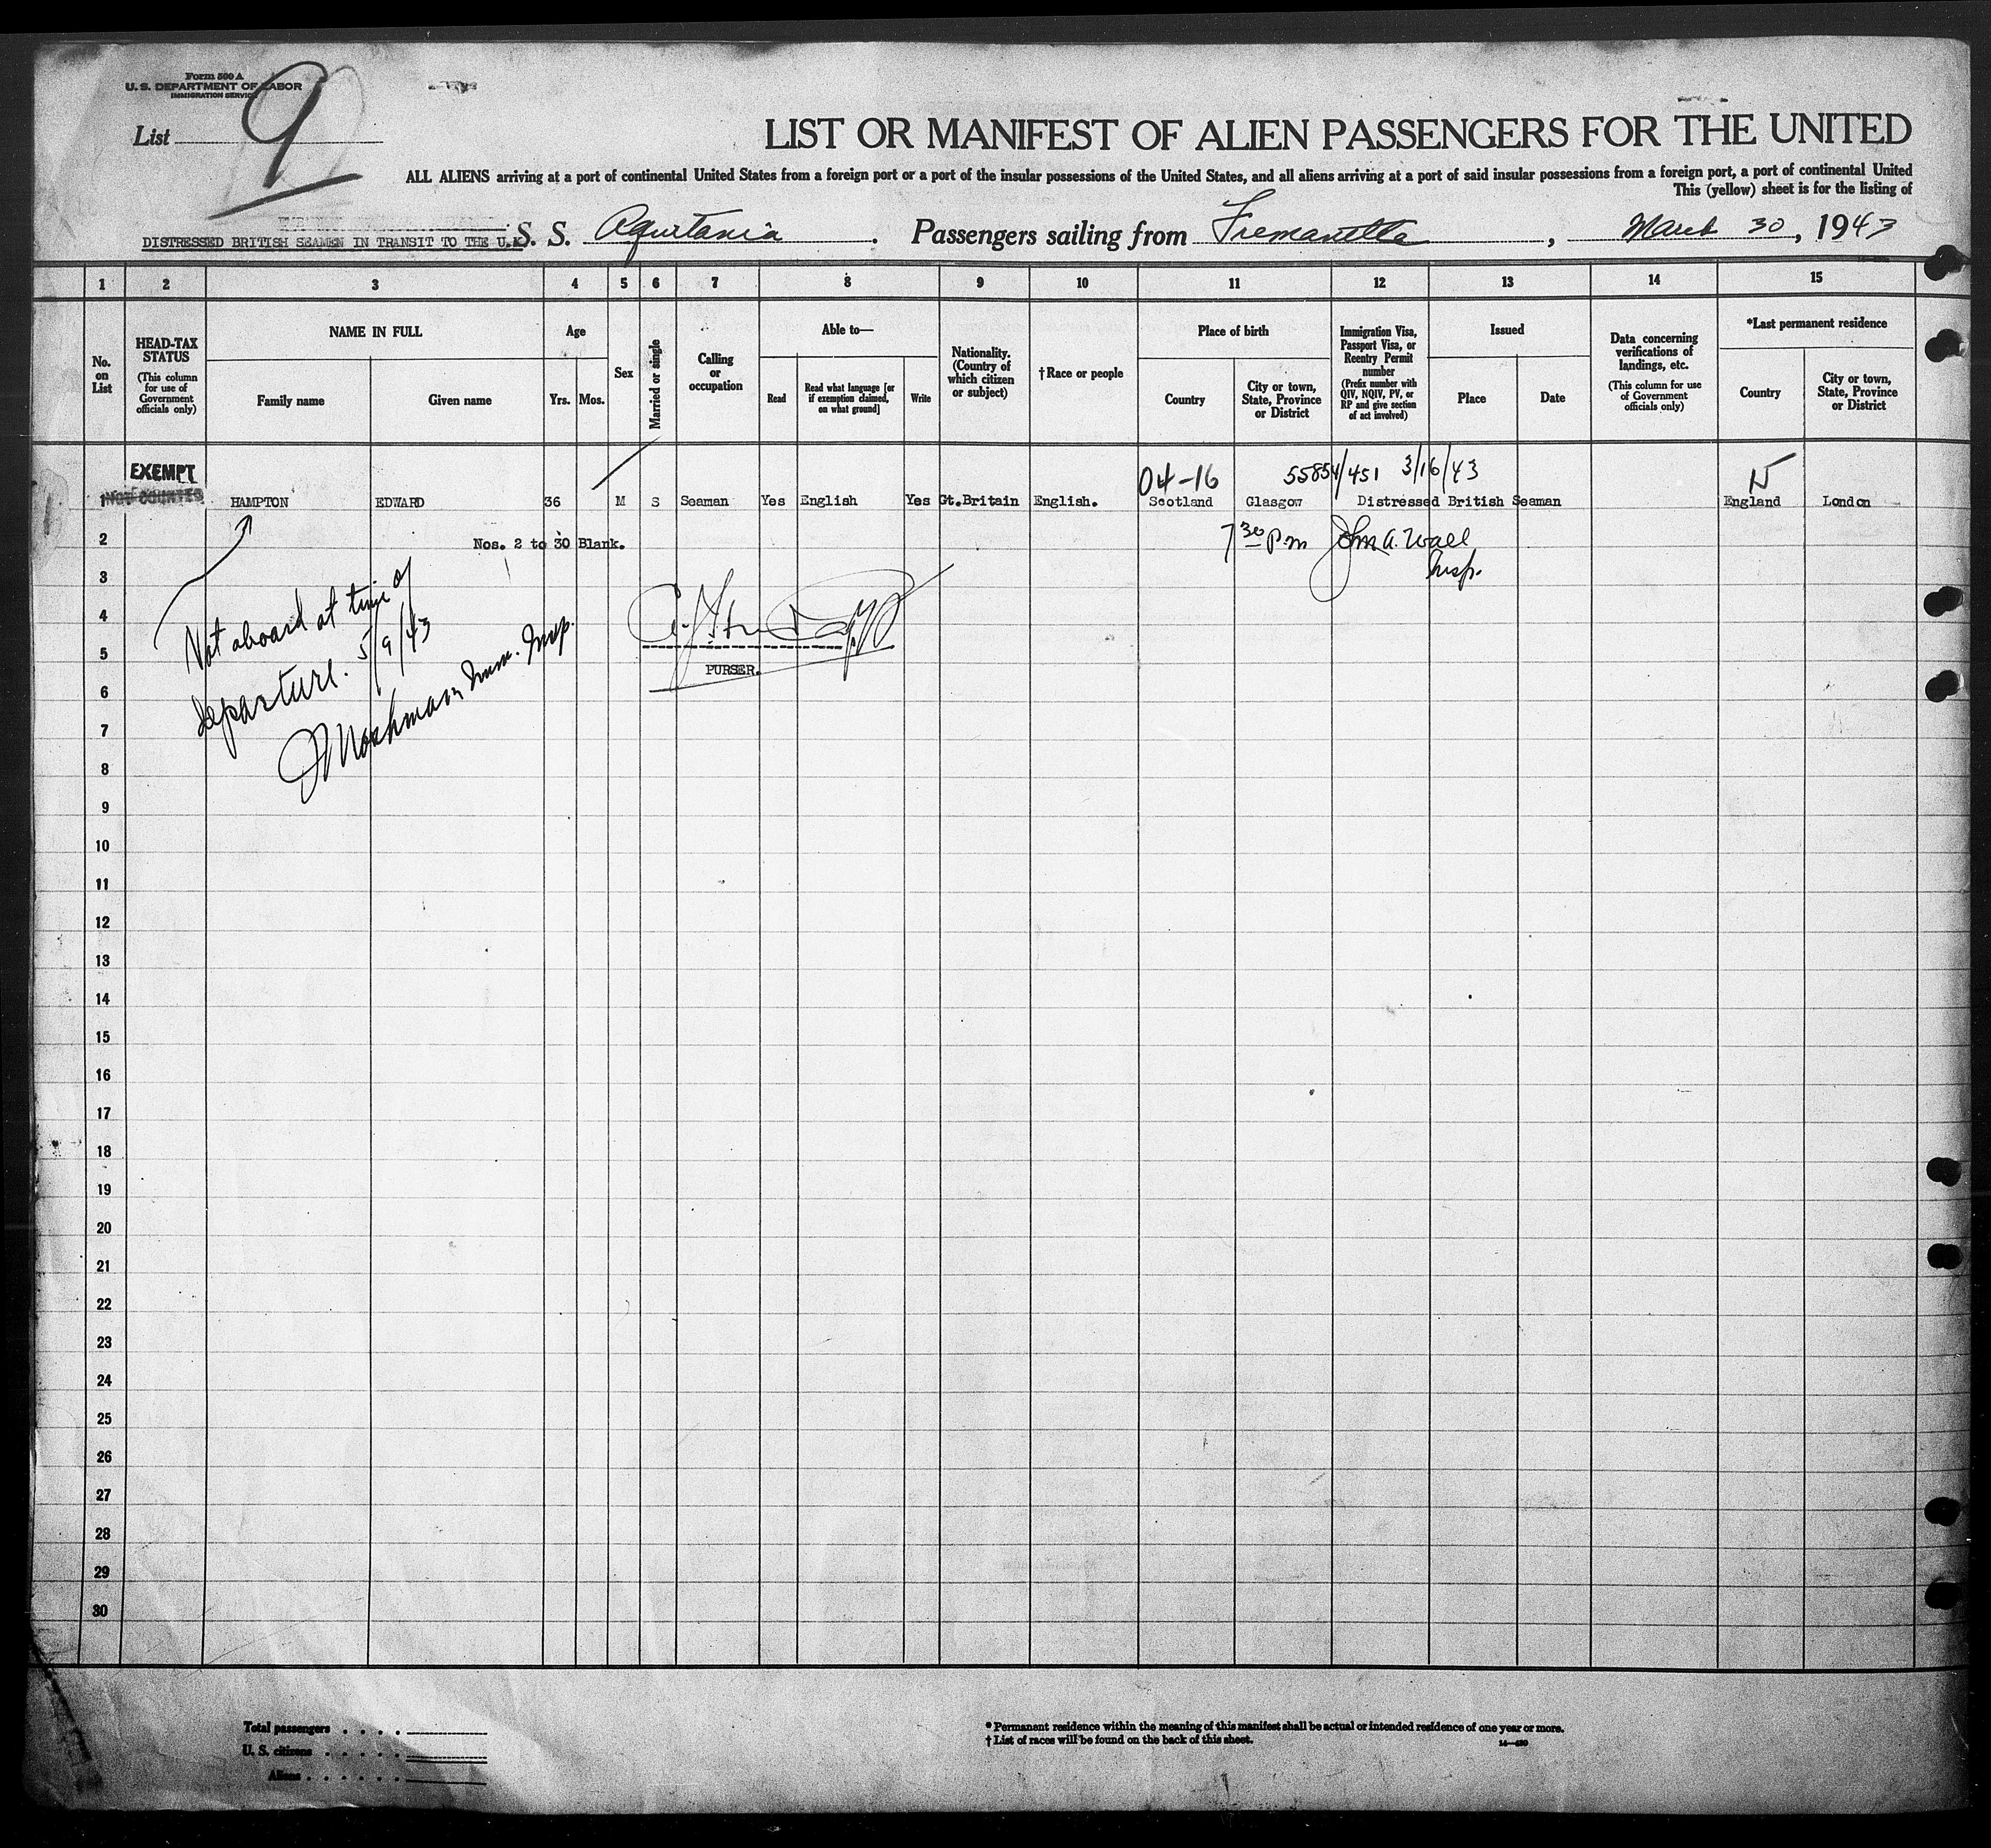 Form 500 A
U. S. DEPARTMENT OF LABOR
IMMIGRATION SERVICE
List 9
LIST OR MANIFEST OF ALIEN PASSENGERS FOR THE UNITED
ALL ALIENS arriving at a port of continental United States from a foreign port or a port of the insular possessions of the United States, and all aliens arriving at a port of said insular possessions from a foreign port, a port of continental United
This (yellow) sheet is for the listing of
DISTRESSED BRITISH SEAMEN IN TRANSIT TO THE U.K.
S. S. Aquitania. Passengers sailing from Fremantle, March 30, 1943
1 2 3 4 5 6 7 8 9 10 11 12 13 14 15
No. on List
HEAD-TAX STATUS
(This column for use of Government officials only)
NAME IN FULL
Family name
Given name
Age
Yrs. Mos.
Sex
Married or single
Calling or occupation
Able to—
Read
Read what language [or if exemption claimed, on what ground]
Write
Nationality. (Country of which citizen or subject)
†Race or people
Place of birth
Country
City or town, State, Province or District
Immigration Visa, Passport Visa, or Reentry Permit number
(Prefix number with QIV, NQIV, PV, or RP and give section of act involved)
Issued
Place
Date
Data concerning verifications of landings, etc.
(This column for use of Government officials only)
*Last permanent residence
Country
City or town, State, Province or District
EXEMPT
NOT COUNTED
04-16 55854/451 3/16/43
1 HAMPTON EDWARD 36 M S Seaman Yes English Yes Gt.Britain English. Scotland Glasgow Distressed British Seaman England London
2 Nos. 2 to 30 Blank.
7 30 p.m John A. Wall
Insp.
3
4
5
6
7
8
9
10
11
12
13
14
15
16
17
18
19
20
21
22
23
24
25
26
27
28
29
30
Not aboard at time of
departure. 5/9/43
Imm. Insp.
PURSER.
Total passengers
U. S. citizens
Aliens
* Permanent residence within the meaning of this manifest shall be actual or intended residence of one year or more.
† List of races will be found on the back of this sheet.